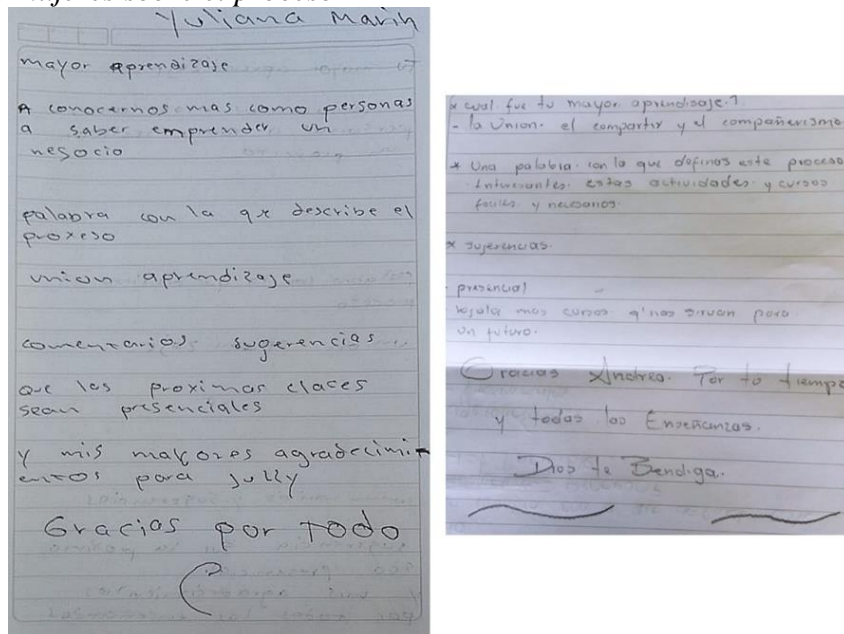 Yuliana Marin
mayor aprendizaje
A conocernos mas como personas
a saber emprender un
negocio
palabra con la que describe el
proxeso
union aprendizaje
comentarios sugerencias
que las proximas clases
sean presenciales
y mis mayores agradecimi-
entos para Jully
Gracias por TODO
* cual fue tu mayor aprendisaje.?
- la Union. el compartir y el compañerismo
* Una palabra con la que definas este proceso
estas actividades y cursos
y necesarios.
* sujerencias.
presencial
mas cursos q' nos sirvan para
un futuro.
Gracias Andrea. Por tu tiempo
y todas las Enseñanzas.
Dios te Bendiga.